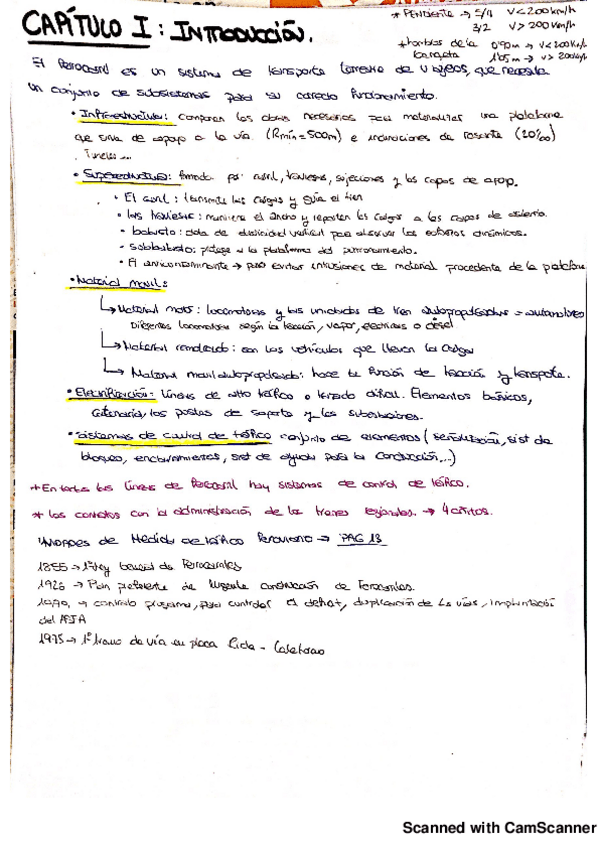 CAPÍTULO I: INTRODUCCIÓN.
* PENDIENTE → 5/4 V<200km/h
3/2 V>200km/h
* hombros de la banqueta 0'90m → V<200km/h
1'05m → V>200km/h
El ferrocarril es un sistema de transporte terrestre de viajeros, que necesita
un conjunto de subsistemas para su correcto funcionamiento.
• Infraestructura: comparan las obras necesarias para materializar una plataforma
que sirva de apoyo a la vía. (Rmín=500m) e inclinaciones de rasante (20‰)
. Túneles...
• Superestructura: formada por: carril, traviesas, sujeciones y las capas de apoyo.
• El carril: transmite las cargas y guía el tren
• las traviesas: mantiene el ancho y reparten las cargas a las capas de asiento.
• balasto: dota de elasticidad vertical para absorver los esfuerzos dinámicos.
• subbalasto: protege a la plataforma del funcionamiento.
• El anticontaminante → para evitar intrusiones de material procedente de la plataforma
• Material movil:
↳ Material motor: locomotoras y las unidades de tren autopropulsadas = automotores
Diferentes locomotoras según la tracción, vapor, electricas o diésel
↳ Material remolcado: son los vehículos que llevan la carga
↳ Material movil autopropulsado: hace la función de tracción y transporte.
• Electrificación: líneas de alto tráfico o trazado difícil. Elementos básicos,
catenaria, los postes de soporte y las subestaciones.
• Sistemas de control de tráfico conjunto de elementos (señalización, sist de
bloqueo, enclavamientos, sist de ayuda para la conducción,...)
* En todas las líneas de ferrocarril hay sistemas de control de tráfico.
* Los contratos con la administración de los trenes regionales. → 4 años.
Unidades de Medida de tráfico ferroviario → PAG 13
1855 → 1ª ley General de Ferrocarriles
1926 → Plan preferente de urgente construcción de Ferrocarriles.
→ contrato programa, para controlar el deficit, duplicación de las vías, implantación
del ASFA
1975 → 1º tramo de vía en placa Ricla - Calatorao
Scanned with CamScanner